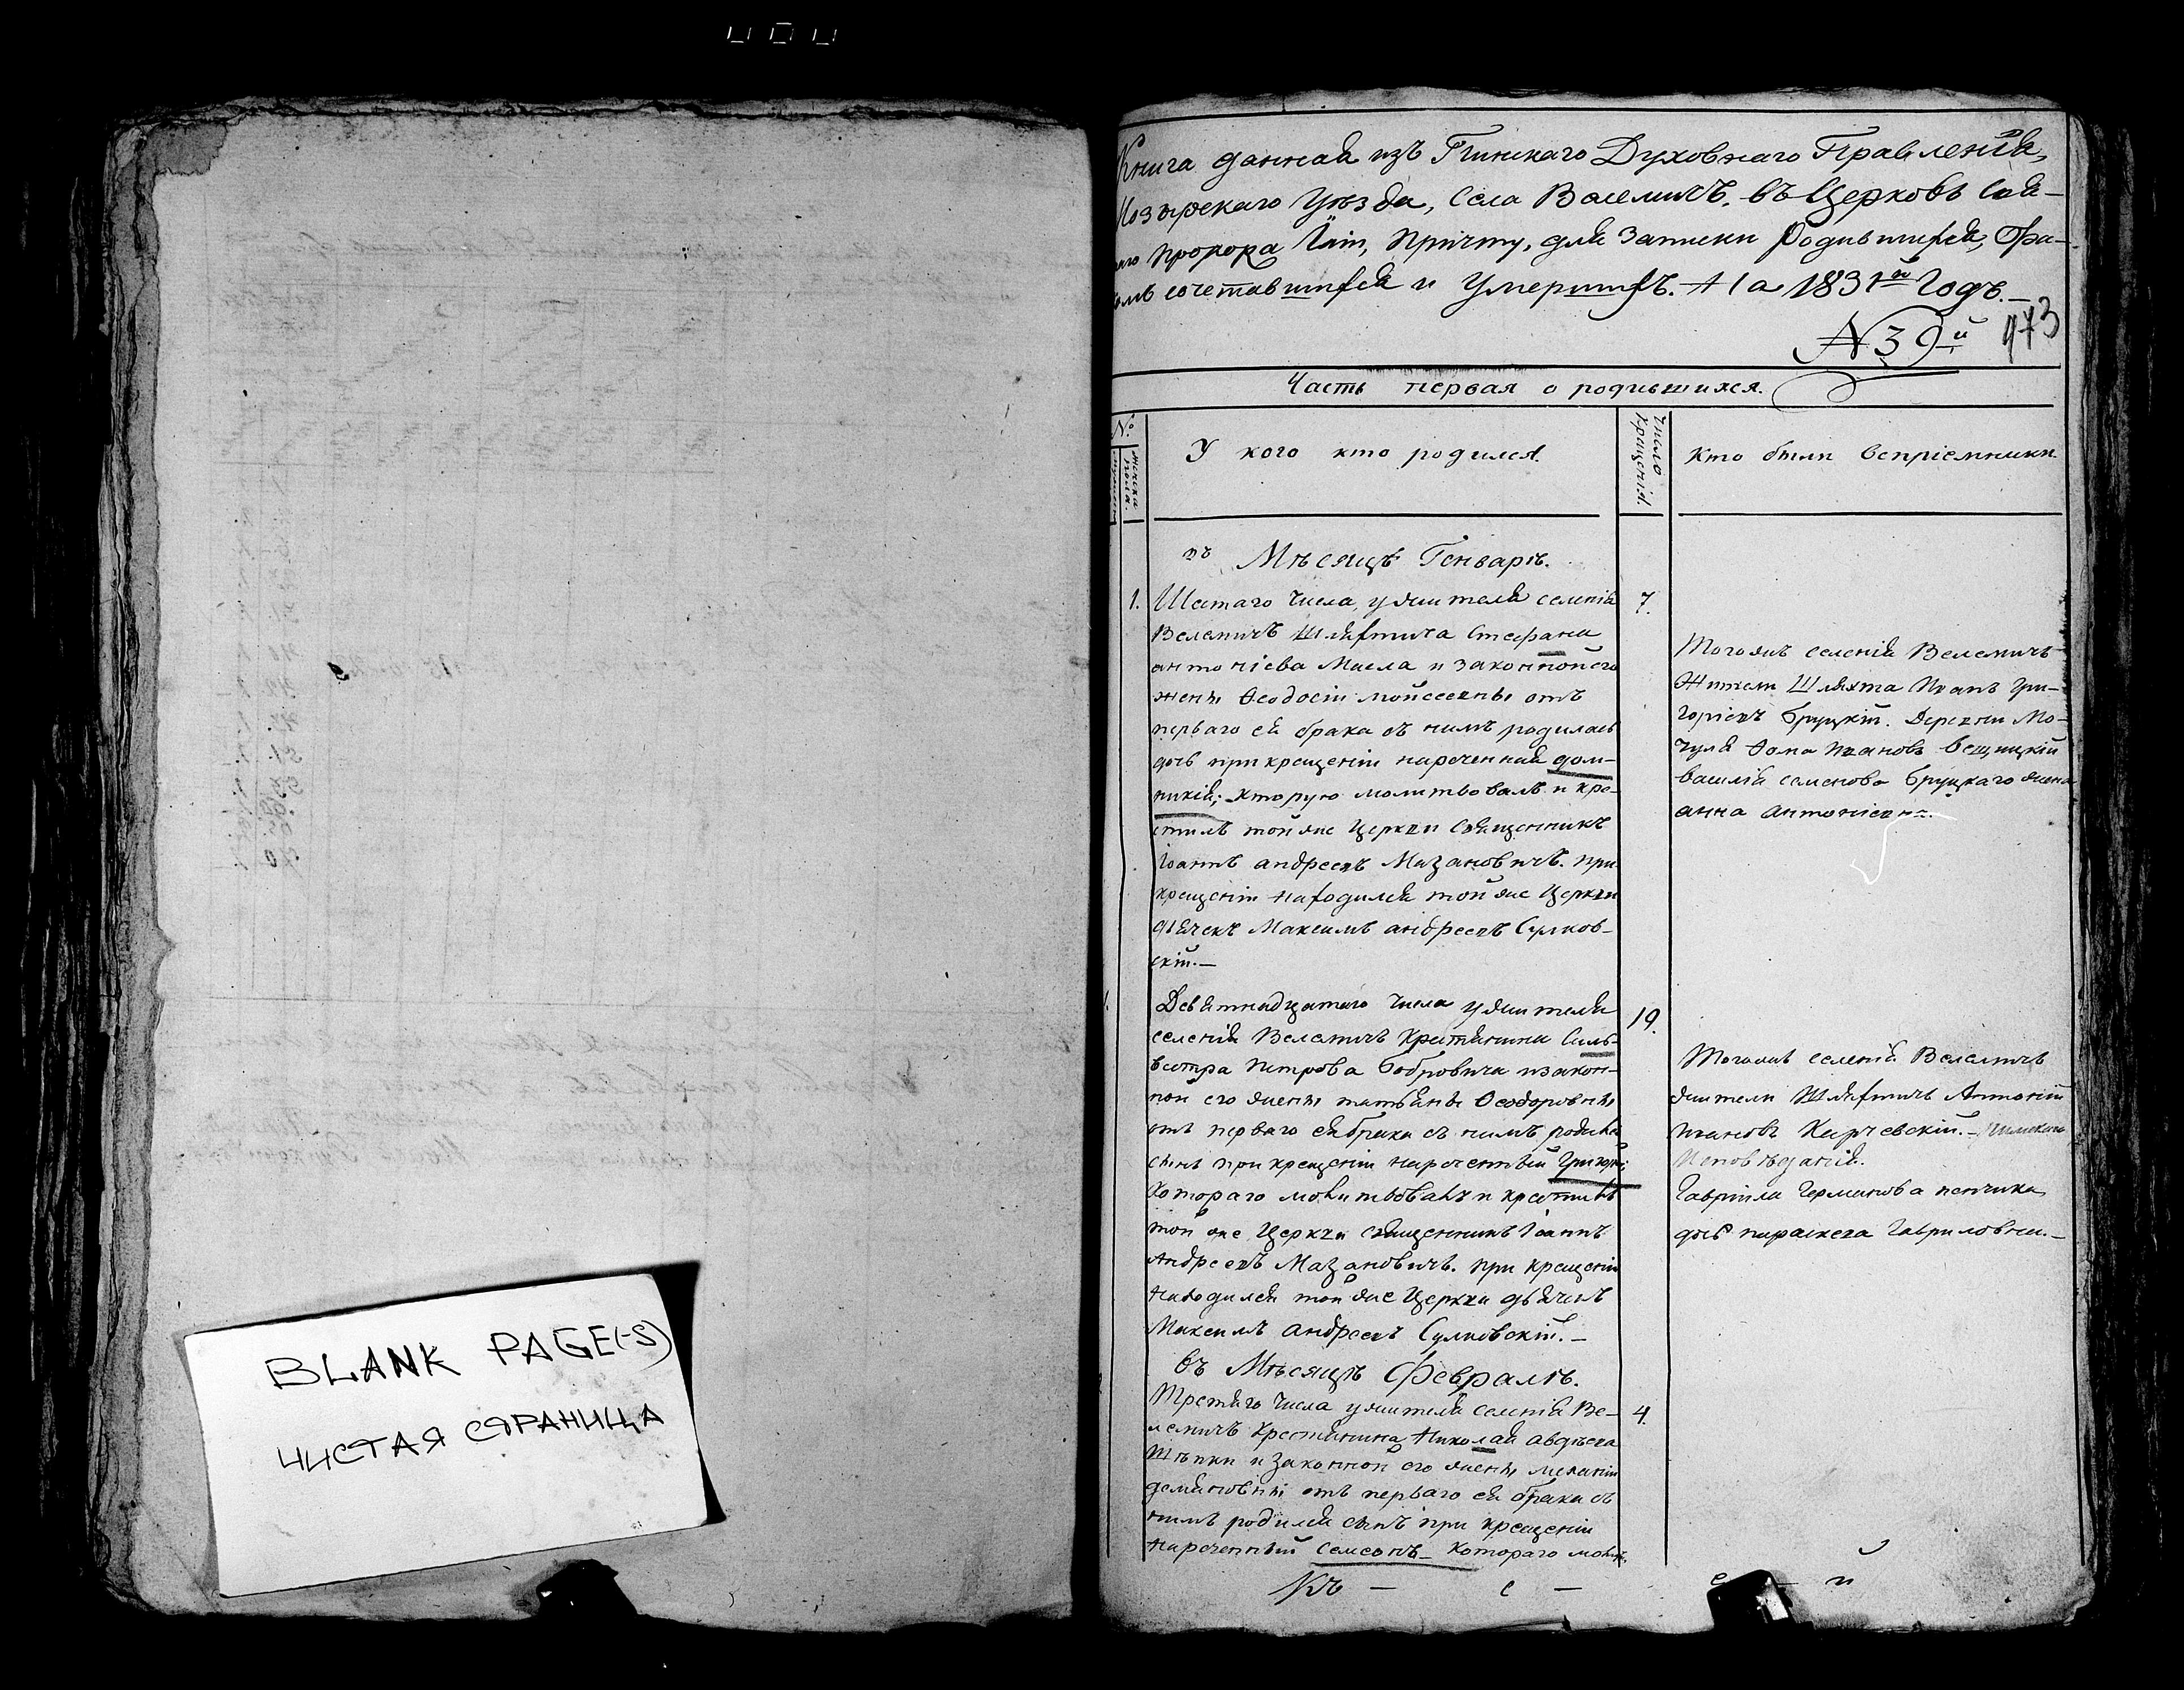 BLANK PAGE(-S)
ЧИСТАЯ СТРАНИЦА
Книга данная изъ Пинскаго Духовнаго Правленія,
Мозырскаго Уѣзда, Села Велемичъ. въ Церковь Свя-
таго Пророка Иліи, Причту, для Записки Родившихся, Бра-
комъ сочетавшихся и Умершихъ. На 1831й Годъ.
N 39й 473
Часть первая о родившихся.
№
женска пола.
У кого кто родился.
Число крещенія.
Кто были воспріемники.
въ Мѣсяцѣ Генварѣ.
1. Шестаго Числа, у жителя селенія 7.
Велемичъ Шляхтича Стефана
антоніева Масла и законной его
жены Феодосіи мойсеевны отъ
перваго ея брака съ нимъ родилась
дочь при крещеніи нареченная дом-
никія; Которую молитвовалъ и кре-
стилъ той же Церкви Священникъ
Іоаннъ андреевъ Мазановичъ. при
крещеніи находился той же Церкви
дьячекъ Максимъ андреевъ Сулков-
скій.—
Тогожъ селенія Велемичъ
Жители Шляхта Иванъ Гри-
горіевъ Бруцкій. Деревни Мо-
чуля Фома Ивановъ Вещицкій
Василія семенова Бруцкаго жена
анна Антоніевна.—
Девятнадцатаго Числа у жителя 19.
селенія Велемичъ Крестянина Силь-
вестра Петрова Бобровича и закон-
ной его жены татьяны Феодоровны
отъ перваго ея брака съ нимъ родился
сынъ при крещеніи нареченный Григорій
Котораго молитвовалъ и крестилъ
той же Церкви священникъ Іоаннъ
Андреевъ Мазановичъ. при крещеніи
находился той же Церкви дьячекъ
Максимъ андреевъ Сулковскій.—
Тогожъ селенія Велемичъ
жители Шляхтичъ Антоній
Ивановъ Кирчевскій.— Римскаго
Исповѣданія.
Гавріила Германова
дочь параскева Гавриловна.—
въ Мѣсяцѣ Февралѣ.
Третяго Числа у жителя селенія Ве- 4.
лемичъ Крестянина Николая авдѣева
и законной его жены меланіи
демяновны отъ перваго ея брака съ
нимъ родился сынъ при крещеніи
нареченный Семеонъ— Котораго молит-
Къ — с — с — и